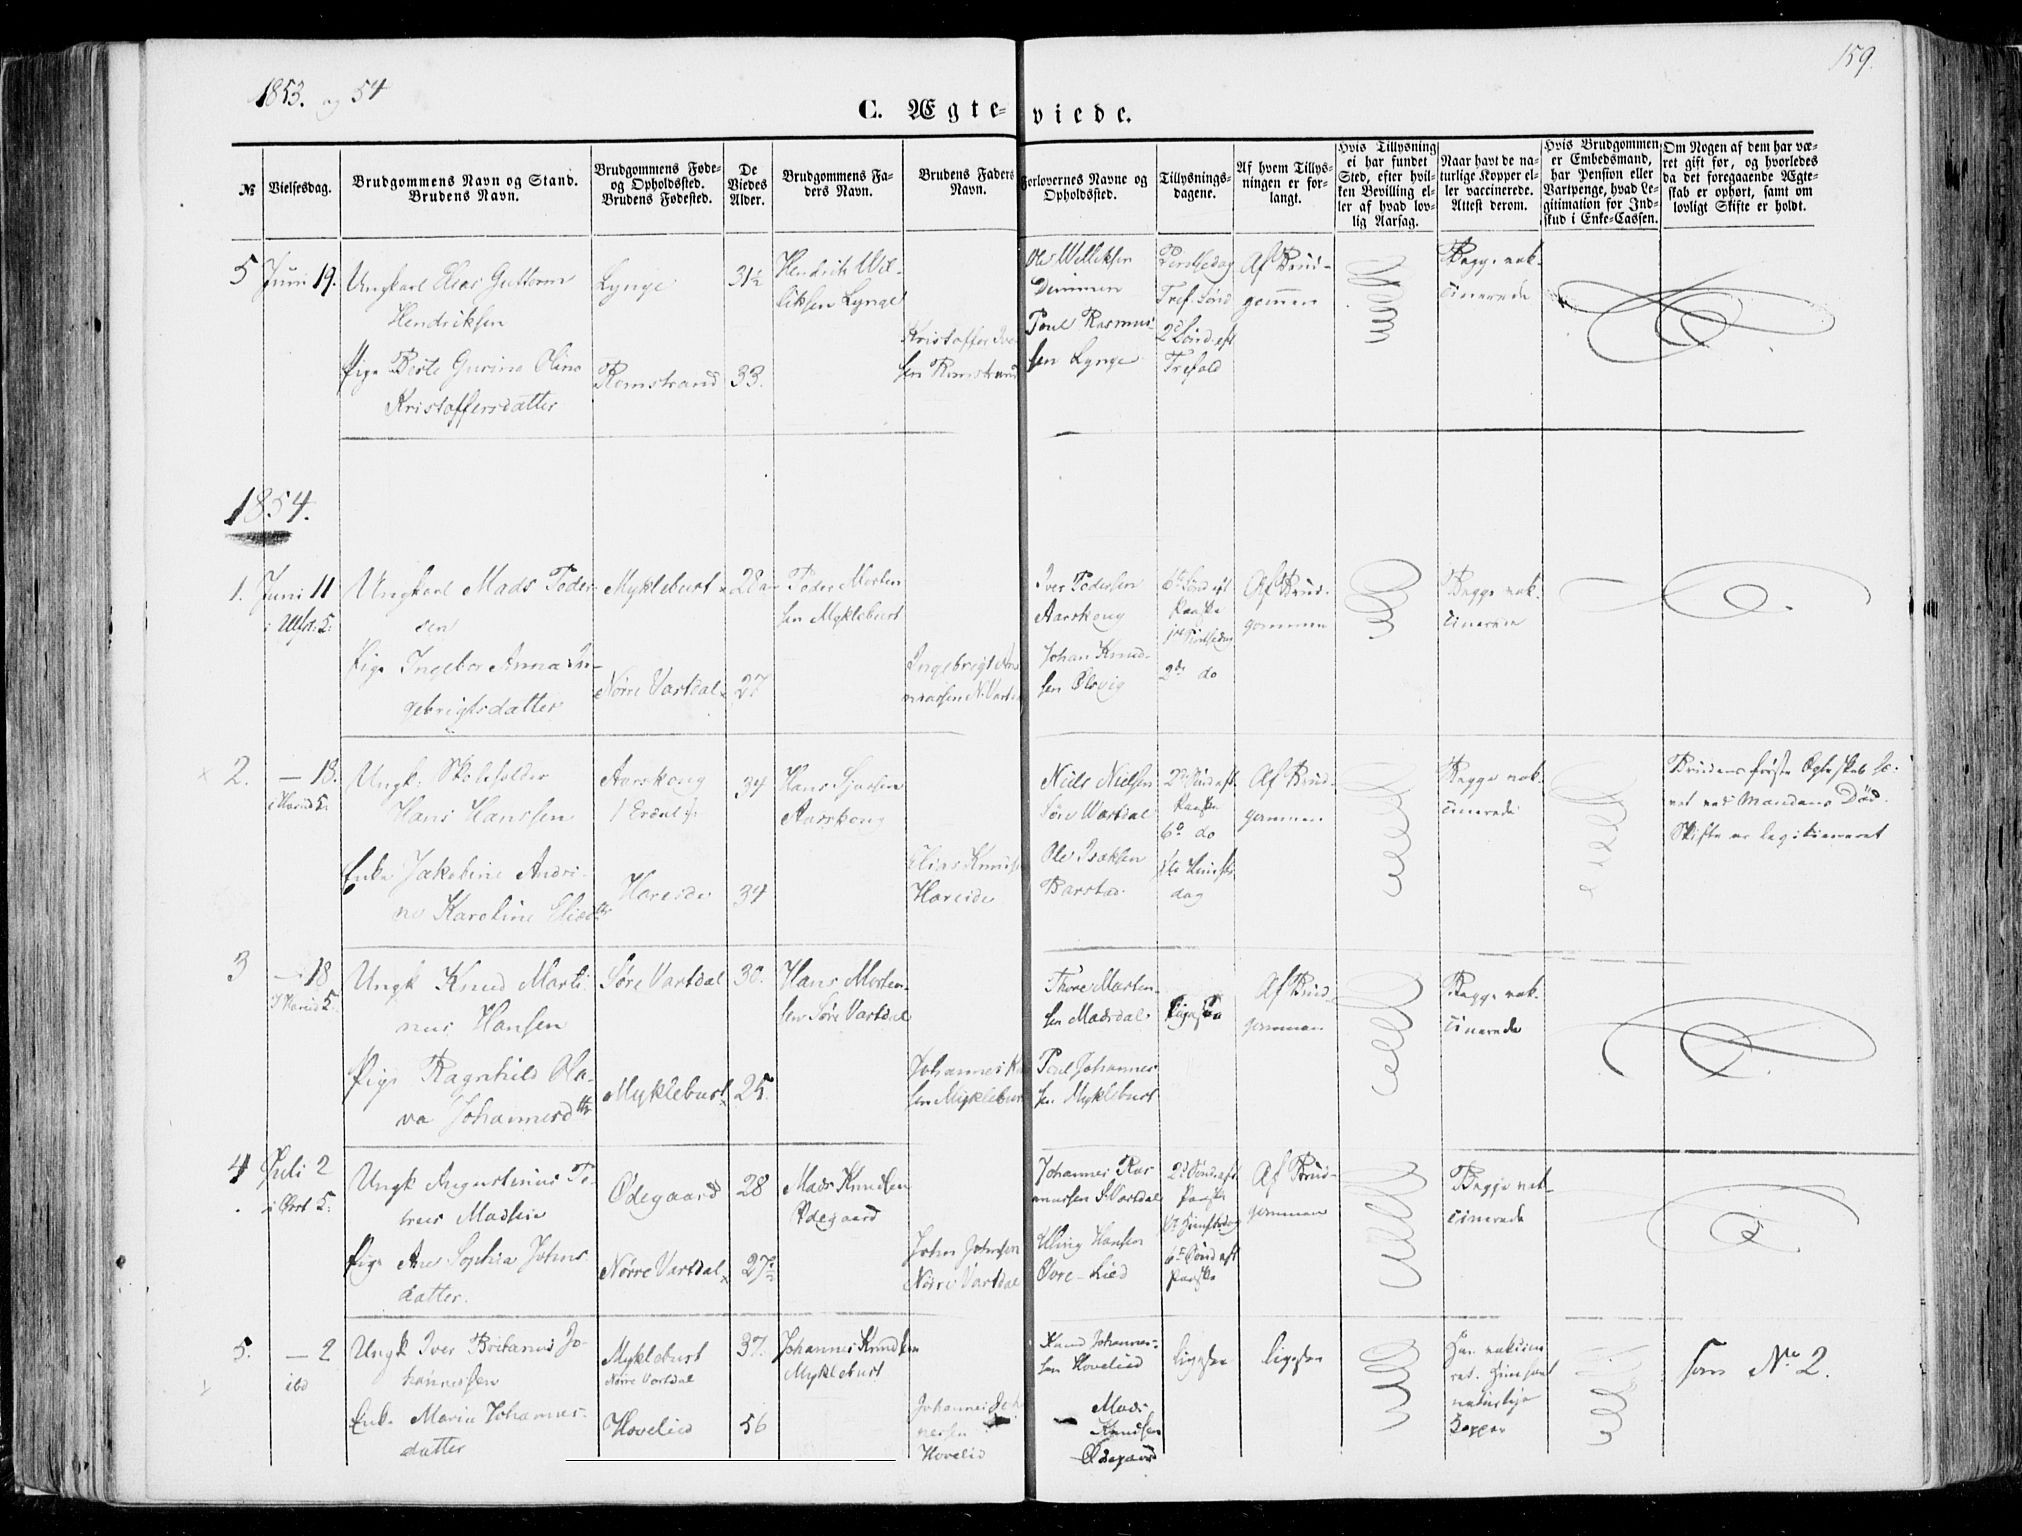 1853. og 54
159.
C. Ægte-viede.
№
Vielsesdag.
Brudgommens Navn og Stand.
Brudens Navn.
Brudgommens Føde-
og Opholdssted.
Brudens Fødested.
De
Viedes
Alder.
Brudgommens Fa-
ders Navn.
Brudens Faders
Navn.
Forlovernes Navne og
Opholdssted.
Tillysnings-
dagene.
Af hvem Tillys-
ningen er for-
langt.
Hvis Tillysning
ei har fundet
Sted, efter hvil-
ken Bevilling el-
ler af hvad lov-
lig Aarsag.
Naar havt de na-
turlige Kopper el-
ler vaccinerede.
Attest derom.
Hvis Brudgommen
er Embedsmand,
har Pension eller
Vartpenge, hvad Le-
gitimation for Ind-
skud i Enke-Cassen.
Om Nogen af dem har væ-
ret gift før, og hvorledes
da det foregaaende Ægte-
skab er ophørt, samt om
lovligt Skifte er holdt.
5 Juni 19.
Ungkarl Elias Guttorm
Hendriksen
Pige Berte Gurine Oline
Kristoffersdatter
Lynge
Romstrand
31½
33.
Hendrik Wil-
liksen Lynge
Kristoffer Ive-
sen Romstrand
Ole Williksen
Dimmen
Poul Rasmus-
sen Lynge
Tref. Sønd
2d Sønd. eft
Trefold
Af Brud-
gommen
Begge vak-
cinerede
1854.
1. Juni 11
Ungkarl Mads Peder-
sen
Pige Ingebor Anna In-
gebrigtsdatter
Myklebust
Nørre Vartdal
28
27
Peder Morten
sen Myklebust
Ingebrigt
N. Vartd
Iver Pedersen
Aarskoug
Johan Knud-
sen
6te Sønd eft
Paaske
2de do
Af Brud-
gommen
Begge vak-
cinerede
2. – 13.
Ungk. Skoleholder
Hans Hanssen
Enke Jakobine Andri-
ne Karoline Eliasdtr
Aarskoug
Hareide
34
34
Hans
Aarskoug
Elias Knuds
Hareide
Niels Nielsen
Søre Vartdal
Ole Isaksen
Barstad
2d Sønd eft
Paaske
6te do
dag
Af Brud-
gommen
Begge vak-
cinerede
Brudens første Egteskab hæ-
vet ved Mandens Død.
Skifte er legitimeret
3 – 18
Ungk Knud Marti-
nus Hansen
Pige Ragnhild Ola-
va Johannesdtr
Søre Vartdal
Myklebust
30.
25.
Hans Morten-
sen Søre Vartdal
Johannes
sen Myklebust
Thore Morten-
sen Madsdal
Poul Johannes
sen Myklebust
ligesaa
Af Brud-
gommen
Begge vak-
cinerede
4 Juli 2
Ungk Augustinus Pe-
trus Madsen
Pige Ane Sophia Johns
datter.
Ødegaard
Nørre Vartdal
28
27
Mads Knudsen
Ødegaard
John Johnsen
Nørre Vartdal
Johannes Ras
mussen S. Vartdal
Elling Hansen
Øvre-Lied
2d Sønd eft
Paaske
6te Sønd eft
Paaske
Af Brud-
gommen
Begge vak-
cinerede
5. – 2
ibd
Ungk Iver Britanus Jo-
hannessen
Enke Maria Johannes-
datter
Myklebust
Nørre Vartdal
Hovelied
37.
56
Johannes Knudsen
Myklebust
Johannes Joh
nesen
Hovelid
Knud Johannes-
sen Hovelied
Mads
Knudsen
Ødegaard
ligesaa
ligesaa
Han vakcine
ret. Hun havt
naturlige
Kopper
som No 2.